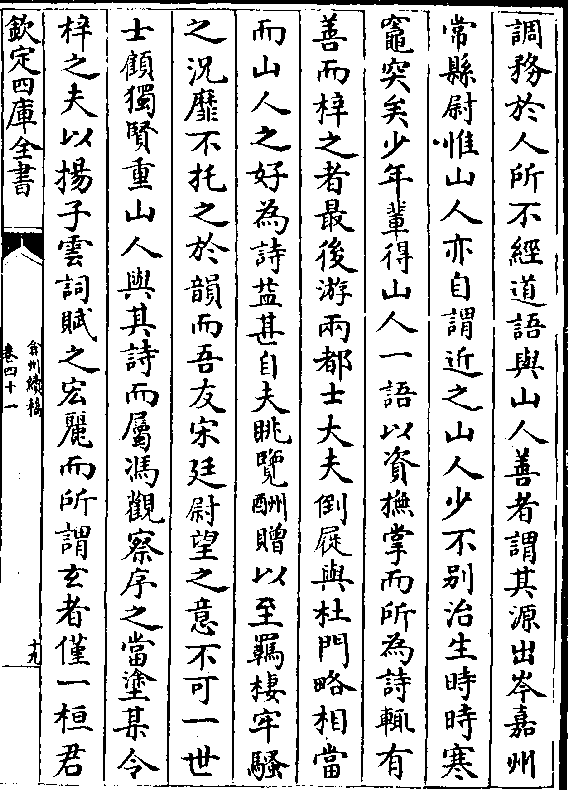 調務於人所不經道語與山人善者謂其源出岑嘉州
常縣尉惟山人亦自謂近之山人少不别治生時時寒
竈突矣少年輩得山人一語以資撫掌而所為詩輒有
善而梓之者最後游兩都士大夫倒屣與杜門略相當
而山人之好為詩益甚自夫眺覽酬贈以至羈棲牢騷
之況靡不托之於韻而吾友宋廷尉望之意不可一世
士顧獨賢重山人與其詩而屬馮觀察序之當塗某令
梓之夫以揚子雲詞賦之宏麗而所謂玄者僅一桓君
欽定四庫全書
弇州續稿
卷四十一
十九